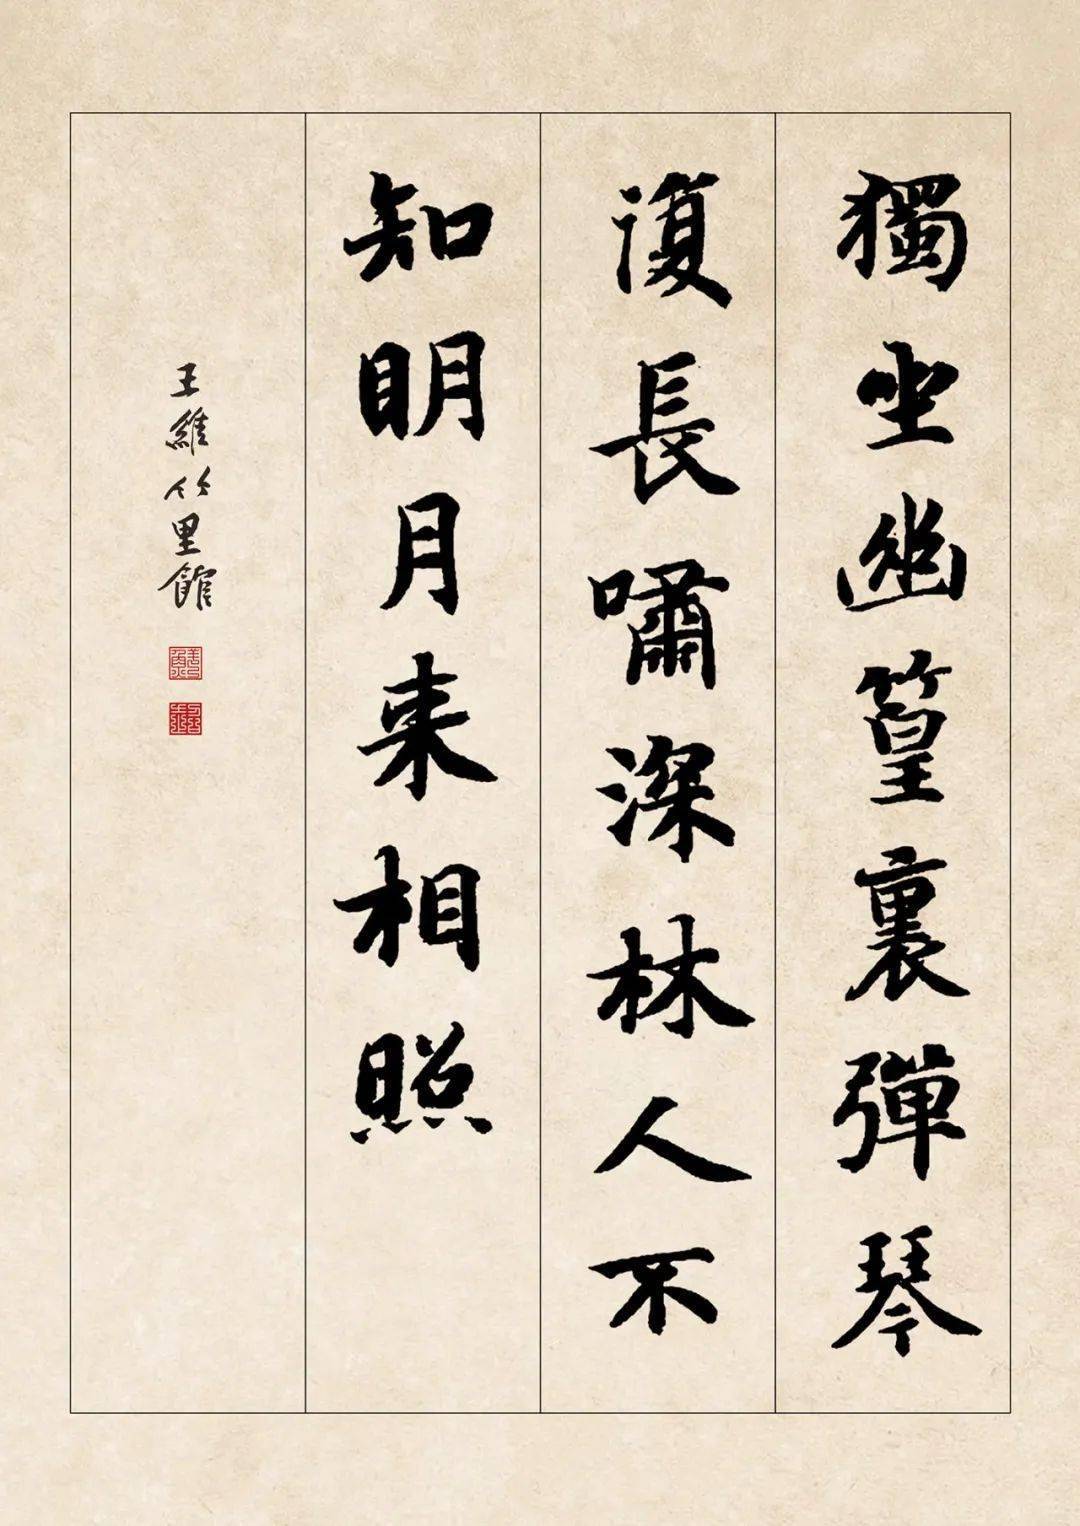 獨坐幽篁裏彈琴
復長嘯深林人不
知明月来相照
王維竹里館